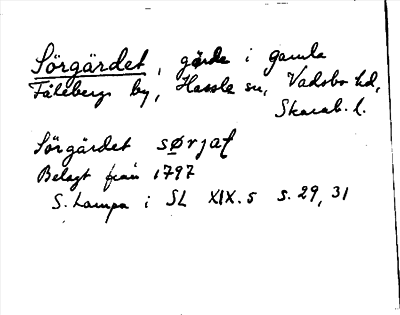 Sörgärdet, gärde i gamla
Fäleberg by, Hassle sn, Vadsbo hd,
Skarab. l.
Sörgärdet
Belagt från 1797
S. Lampa i SL XIX.5 s. 29, 31